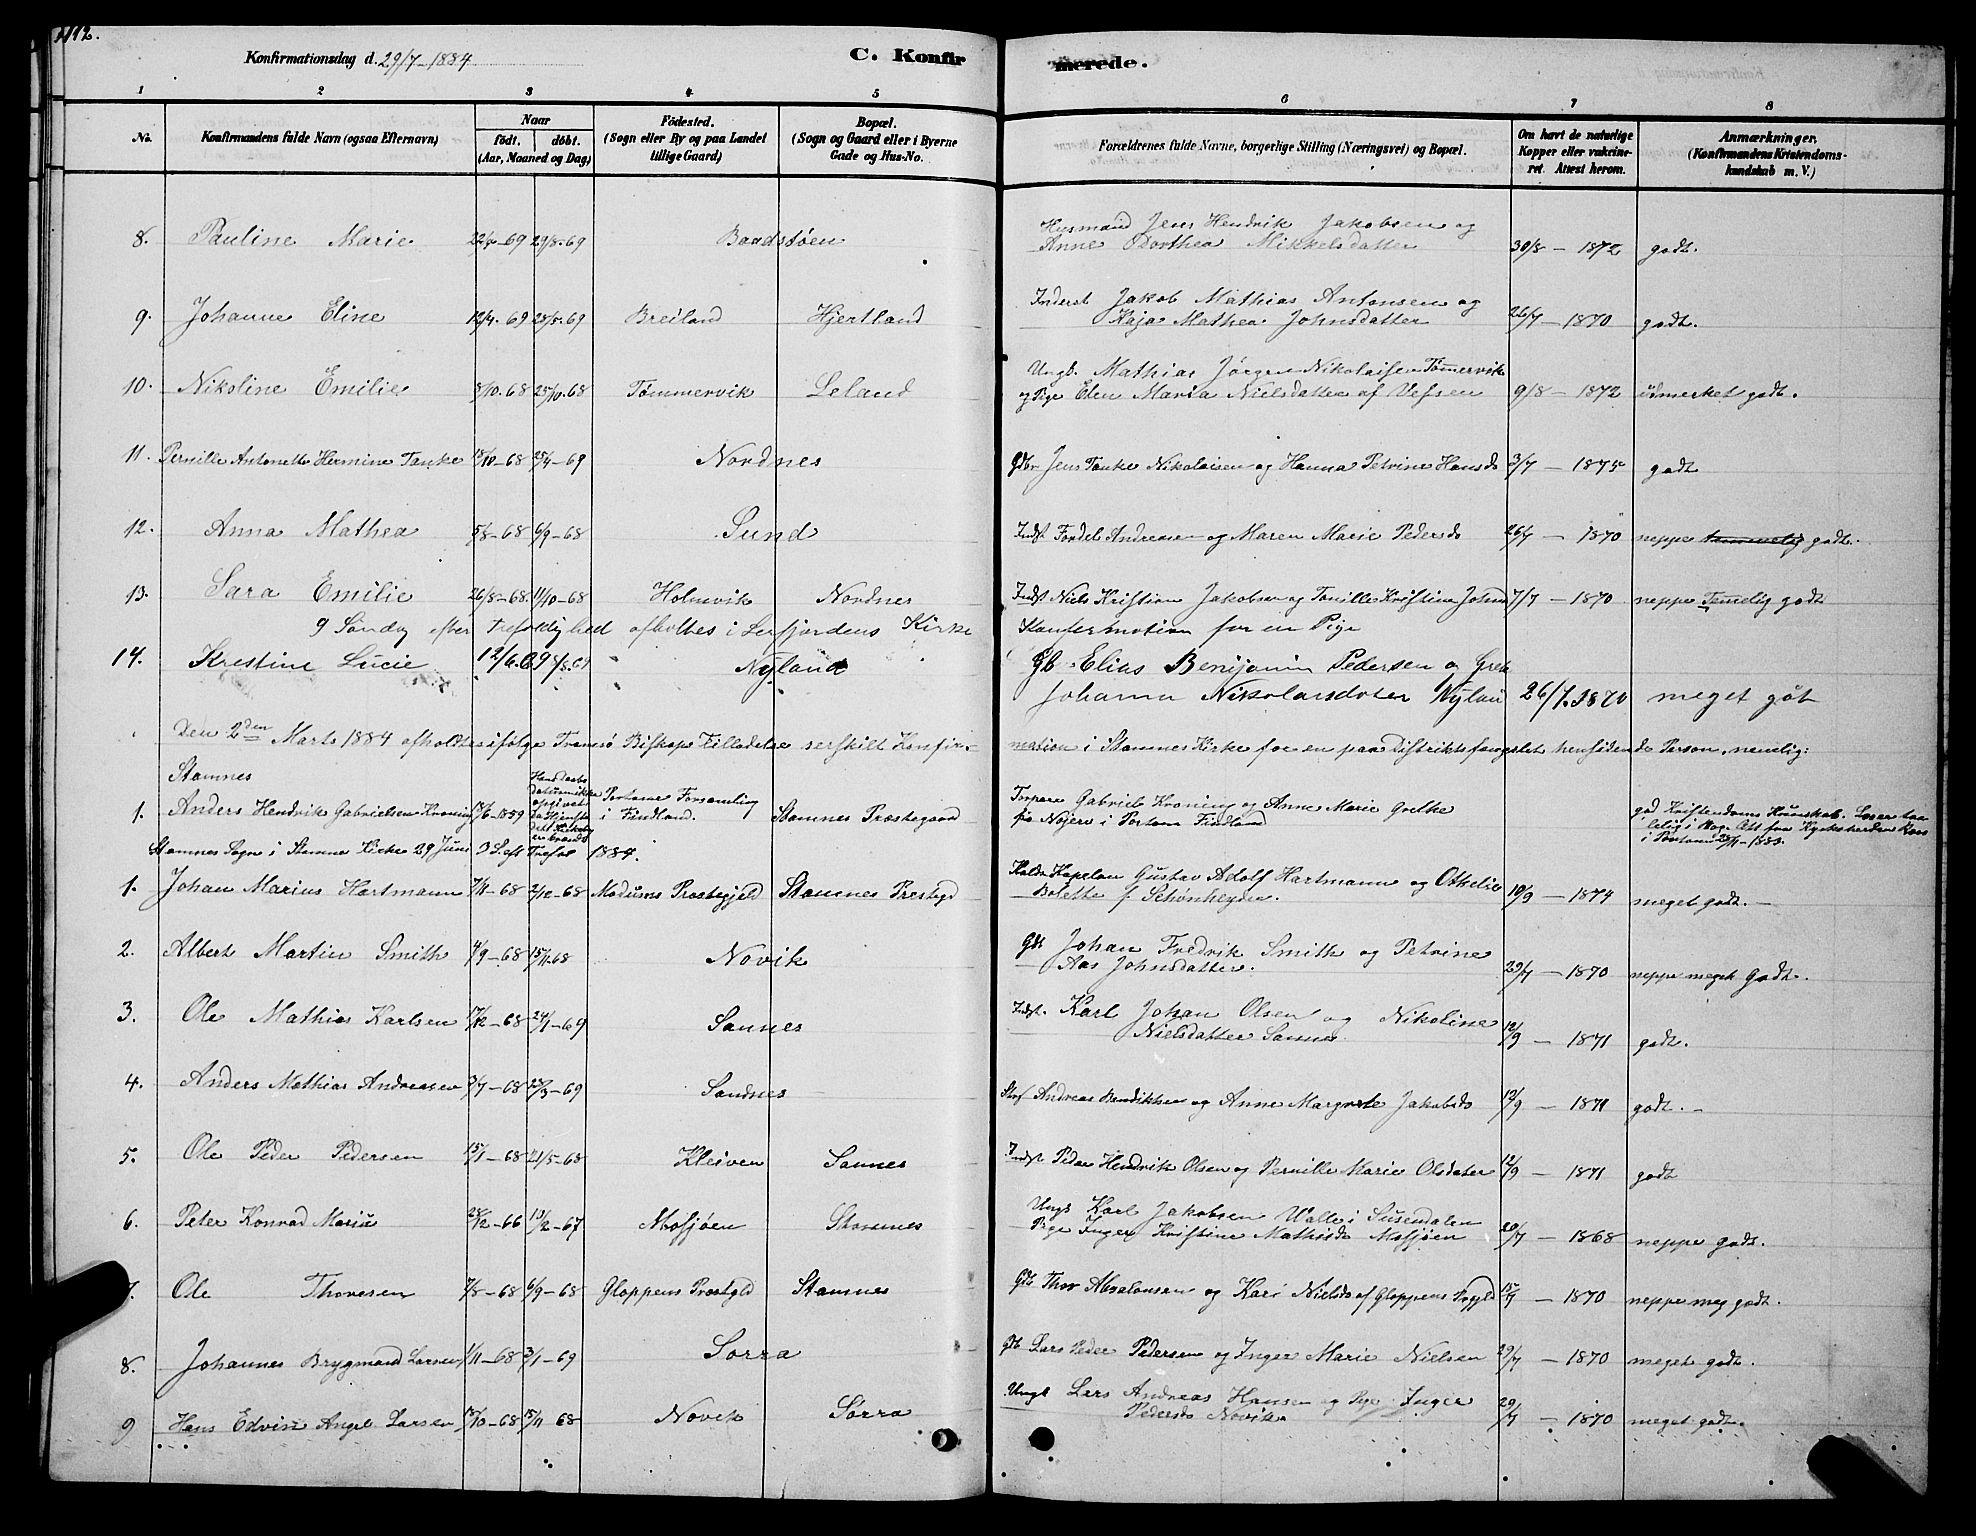 112.
Konfirmationsdag d. 29/7-1884
C. Konfirmerede.
1 2 3 4 5 6 7 8
No. Konfirmandens fulde Navn (ogsaa Efternavn) Naar födt. döbt. (Aar, Maaned og Dag) Födested. (Sogn eller By og paa Landet tillige Gaard) Bopæl. (Sogn og Gaard eller i Byerne Gade og Hus-No. Forældrenes fulde Navne, borgerlige Stilling (Næringsvei) og Bopæl. Om havt de naturlige Kopper eller vakcineret. Attest herom. Anmærkninger. (Konfirmandens Kristendomskundskab m. V.)
8. Pauline Marie 29/8-69 Baadstøen Husmand Jens Hendrik Jakobsen og
Anne Dorthea Mikkelsdatter 30/8 - 1872 godt.
9. Johanne Eline 12/4-69 25/5-69 Breiland Hjertland Inderst Jakob Mathias Antonsen og
Kaja Mathea Johnsdatter 26/7 - 1870 godt.
10. Nikoline Emilie 8/10-68 25/10-68 Tømmervik Leland Ungk. Mathias Jørgen Nikolaisen Tømmervik
og Pige Elen Maria Nielsdatter af Vefsen 9/8 - 1872 udmerket godt.
11. Pernille Antonette Hermine Tanke 18/10-68 25/4-69 Nordnes Gdbr Jens Tanke Nikolaisen og Hanna Petrine Hansd 3/7 - 1875 godt
12. Anna Mathea 5/8-68 6/9-68 Sund Indst Fordel Andreasen og Maren Marie Pedersd 26/7 - 1870 neppe temmelig godt.
13. Sara Emilie 26/8-68. 11/10-68 Holmvik Nordnes Indst Niels Kristian Jakobsen og Tonille Kristine Johns 7/7 - 1870 neppe Temelig godt
9 Søndg efter trefoldighed afholtes i Lerfjordens Kirke Konfermation for en Pige
14. Krestine Lucie 12/6.69 8/8.69 Nyland Gb. Elias Benijamin Pedersen og Grete
Johanna Nikolaisdater Nylan 26/7.1870 meget gåt
Den 2den Marts 1884 afholdtes ifølge Tromsö Biskops Tilladelse serskilt Konfirmation i Stamnes Kirke for en paa Distriktsfængslet hensidende Person, nemlig:
Stamnes
1. Anders Hendrik Gabrielsen Kroning 13/6-1859 Portome Forsamling i Findland. Stamnes Præstegaard Torpare Gabriel Kroning og Anne Marie Grethe
på Näjere i Portom Findland god Kristendoms Kundskab.
Stamnes Sogn i Stamnes Kirke 29 Juni 3 S. eft Trefol 1884.
1. Johan Marius Hartmann 7/11-68 2/12-68 Modums Præstegjeld Stamnes Prestegd Kapelan Gustav Adolf Hartmann og Othelie
Bolette f. Schønheyder. 10/9 - 1874 meget godt.
2. Albert Martin Smith 4/9-68 15/11-68 Novik Gb Johan Fredrik Smith og Petrine
Aas Johnsdatter. 29/7 - 1870 neppe meget godt.
3. Ole Mathias Karlsen 17/12-68 24/1-69 Sannes Indst. Karl Johan Olsen og Nikoline
Nielsdatter Sannes. 12/9 - 1871 godt.
4. Anders Mathias Andreasen 3/7-68 23/3-69 Sandnes Andreas Bendikksen og Anne Margrete Jakobsd 12/9 - 1871 godt.
5. Ole Peder Pedersen 15/1-68 21/5-68 Kleiven Sannes Indst Peder Hendrik Olsen og Pernille Marie Olsdater 12/9 - 1871 godt
6. Peter Konrad Marius 28/12-66 10/2-67 Mosjøen Stamnes Ungk Karl Jakobsen Valle i Susendalen
Pige Inger Kristine Mathisd Mosjøen 20/7 - 1868 neppe godt.
7. Ole Thoresen 7/8-68 6/9-68 Gloppens Præstgld Stamnes Gb Thor Absalonsen og Kari Nielsd af Gloppens Prgjld 15/9 - 1870 neppe meg godt.
8. Johannes Brygmand Larsen 1/11-68 3/1-69 Sørra Gb Lars Peder Pedersen og Inger Marie Nielsen 29/7 - 1870 meget godt.
9 Hans Edvin Angel Larsen 13/10-68 15/11 68 Novik Sørra Ungk Lars Andreas Hansen og Pige Inger
Pedersd Novik 29/7 - 1870 meget godt.